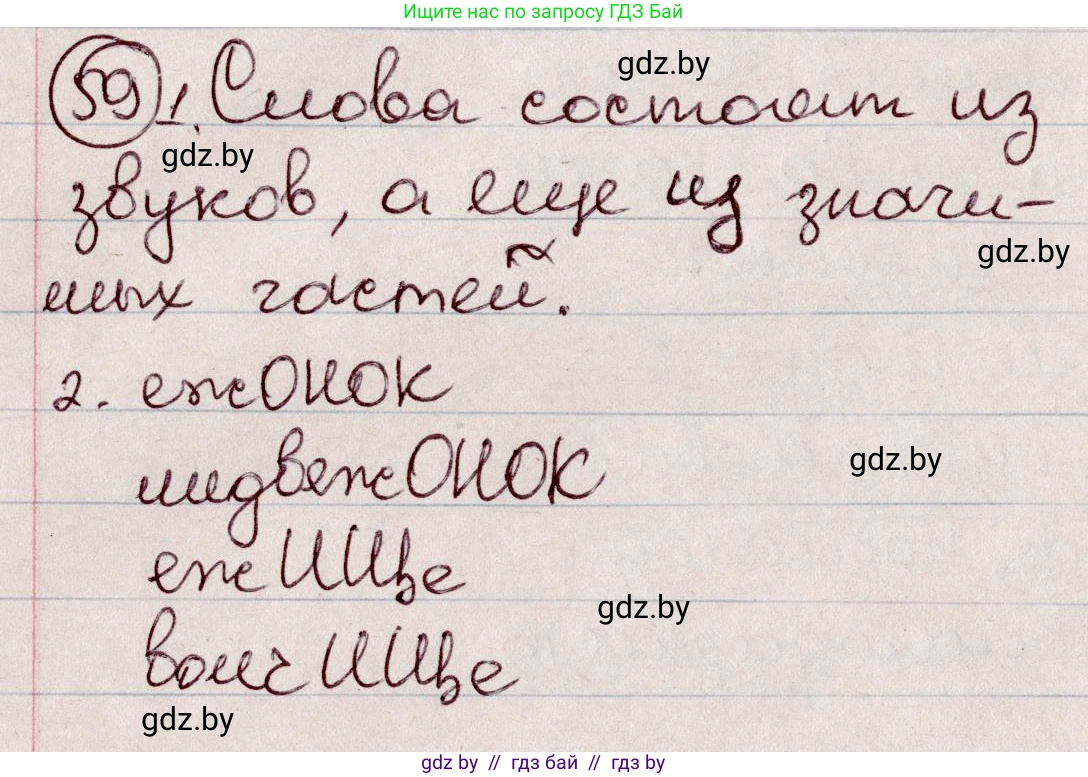 Ищите нас по запросу ГДЗ Бай
gdz.by
59 1. Слова состоят из
gdz.by
звуков, а еще из значи-
gdz.by
мых частей.
2. ежОНОК
медвежОНОК
gdz.by
ежИЩе
gdz.by
волчИЩе
gdz.by
gdz by // гдз бай // гдз by